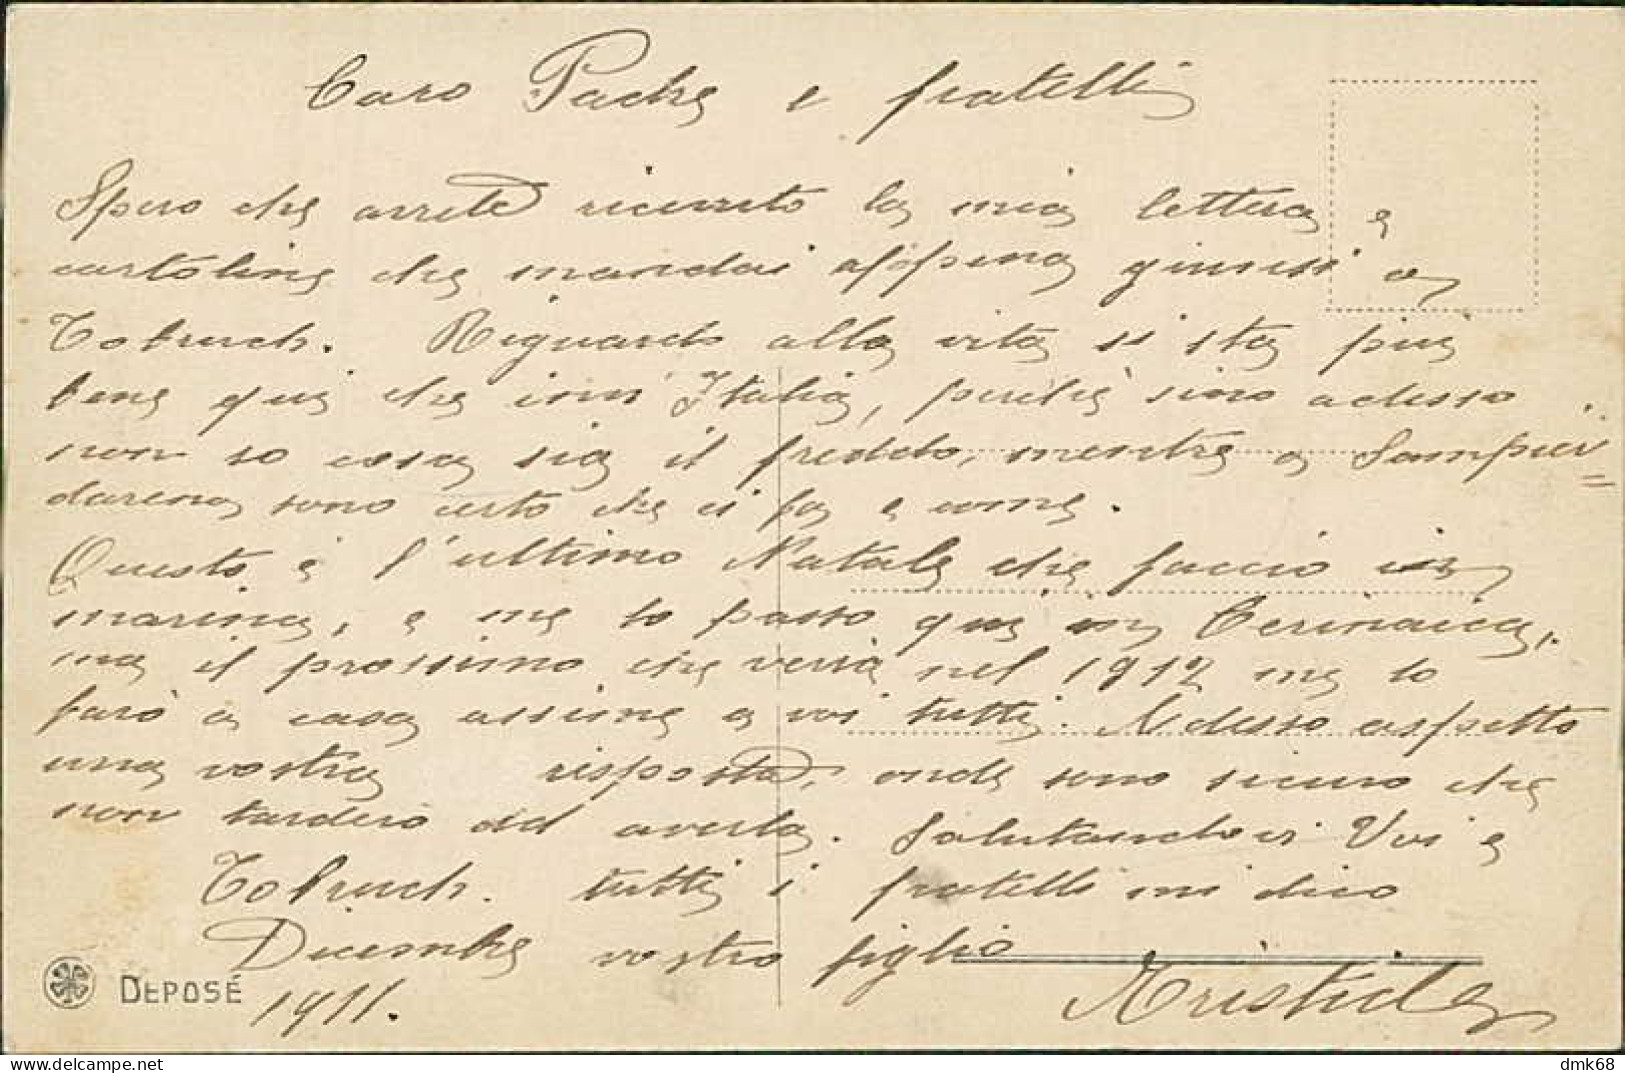 Caro Padre e fratelli
Spero che avrete ricevuto la mia lettera e
cartoline che mandai appena giunsi a
Tobruch. Riguardo alla vita si sta più
bene qui che in Italia, perchè sino adesso
non so cosa sia il freddo, mentre a Sampier=
darena sono certo che ci fa e come.
Questo è l'ultimo Natale che faccio in
marina, e me lo passo qui in Cerinaica,
ma il prossimo che verrà nel 1912 me lo
farò a casa assieme a voi tutti. Adesso aspetto
una vostra risposta, onde sono sicuro che
non tarderò ad averla. Salutandovi Voi e
Tobruch. tutti i fratelli mi dico
Dicembre vostro figlio
1911. Aristide
DEPOSÉ
dmk68